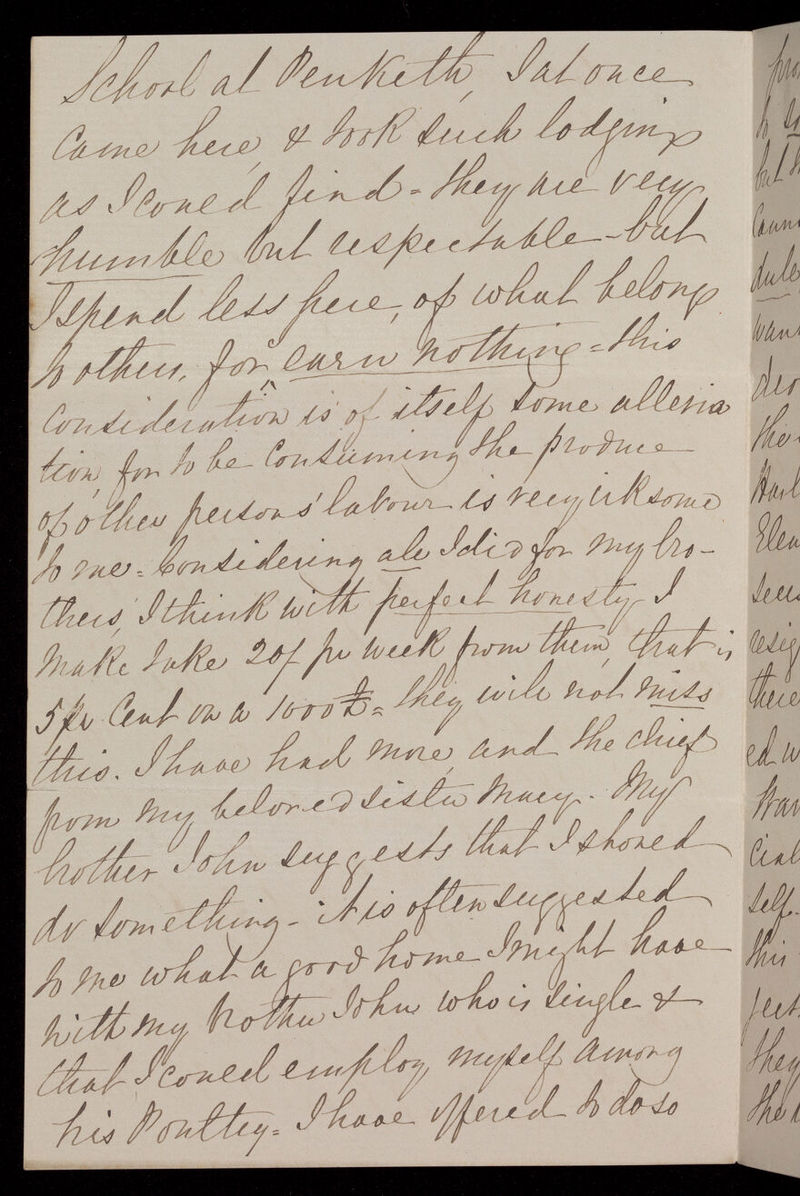 School at Penketh, I at once
Came here, & took such lodgings
as I could find = they are very
humble but respectable – but
I spend less here, of what belongs
to others, for earn nothing = this
Consideration is of itself some allevia
tion, for to be Consuming the produce
of other persons' labour is very irksome
to me = Considering all I did for my bro-
thers, I think with perfect honesty I
make take 20/ pr week from them, that is
5 pr Cent on a 1000£ = they will not miss
this. I have had more, and the chief
from my beloved sister Mary. My
brother John suggests that I should
do something – it is often suggested
to me what a good home I might have
with my brother John who is single &
that I could employ myself among
his Poultry = I have offered to do so